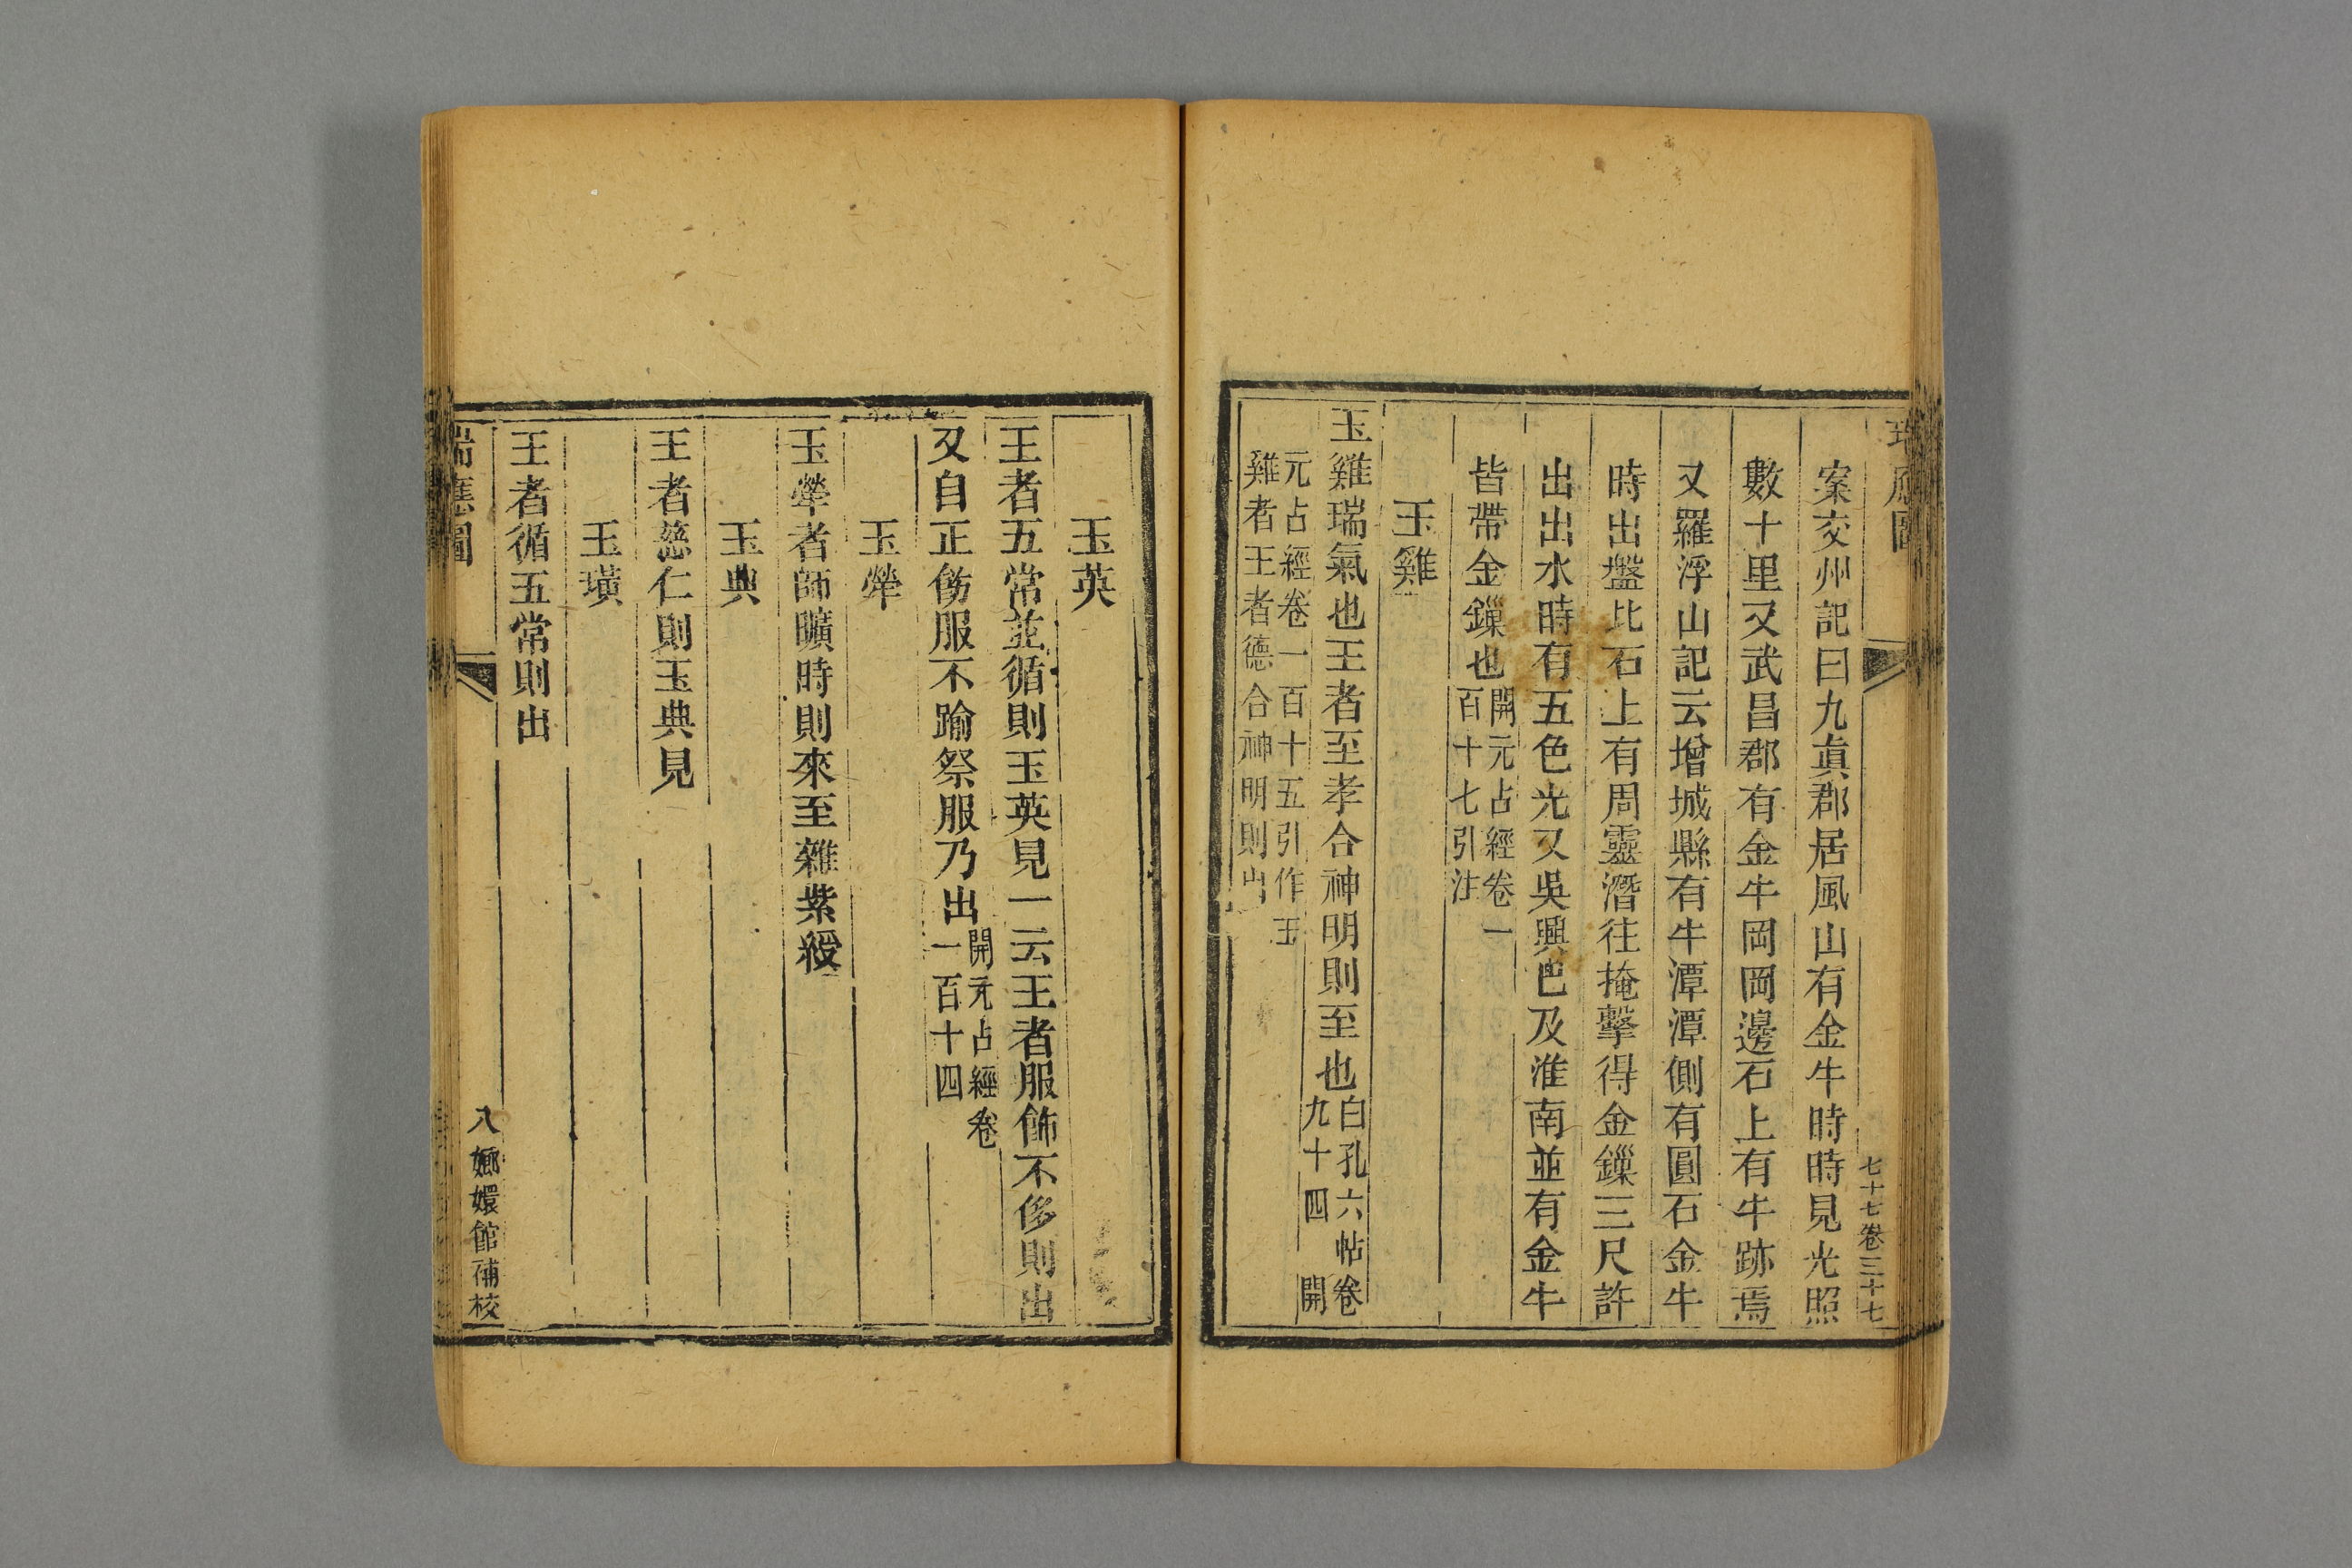 瑞應圖
七十七卷三十七
案交州記曰九眞郡居風山有金牛時時見光照
數十里又武昌郡有金牛岡岡邊石上有牛跡焉
又羅浮山記云增城縣有牛潭潭側有圓石金牛
時出盤比石上有周靈潛往掩擊得金鏁三尺許
出出水時有五色光又吳興邑及淮南並有金牛
皆帶金鏁也開元占經卷一
百十七引注
玉雞
玉雞瑞氣也王者至孝合神明則至也白孔六帖卷
九十四 開
元占經卷一百十五引作玉
雞者王者德合神明則出
玉英
王者五常並循則玉英見一云王者服飾不侈則出
又自正傷服不踰祭服乃出開元占經卷
一百十四
玉犖
玉犖者師曠時則來至雜紫綬
玉典
王者慈仁則玉典見
玉璜
王者循五常則出
瑞應圖
八
嫏嬛館補校